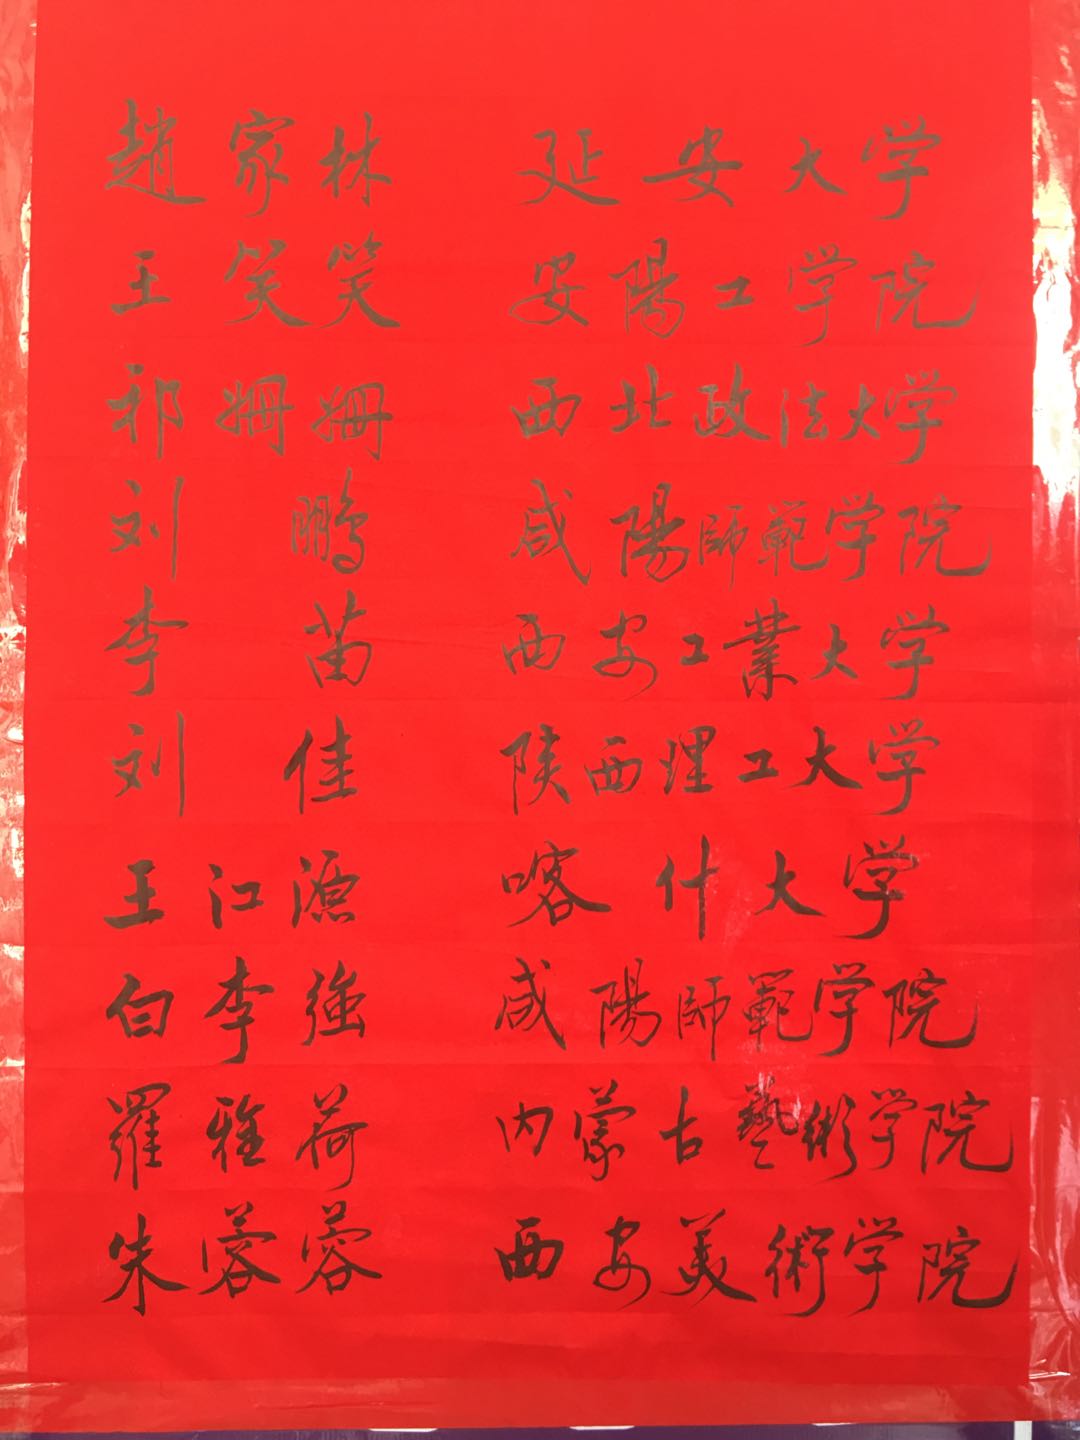 趙家林 延安大学
王笑笑 安陽工学院
祁姗姗 西北政法大学
刘鹏 咸陽師範学院
李苗 西安工業大学
刘佳 陕西理工大学
王江源 喀什大学
白李強 咸陽師範学院
羅雅荷 内蒙古藝術学院
朱蓉蓉 西安美術学院